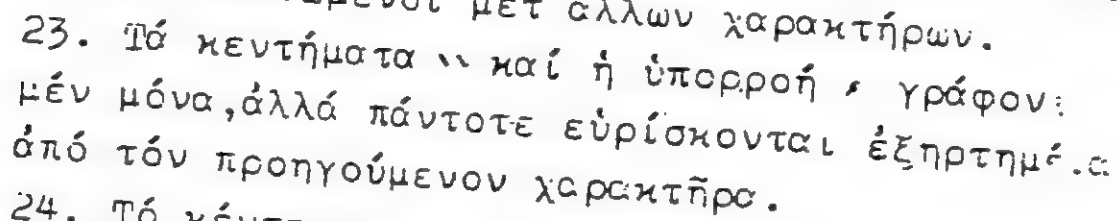 μετ άλλων χαρακτήρων.
23. Τά κεντήματα 〃 καί ἡ ὑπορροή , γράφον
μέν μόνα,ἀλλά πάντοτε εὑρίσκονται ἐξηρτημέ.α
ἀπό τόν προηγούμενον χαρακτῆρα.
24. Τό